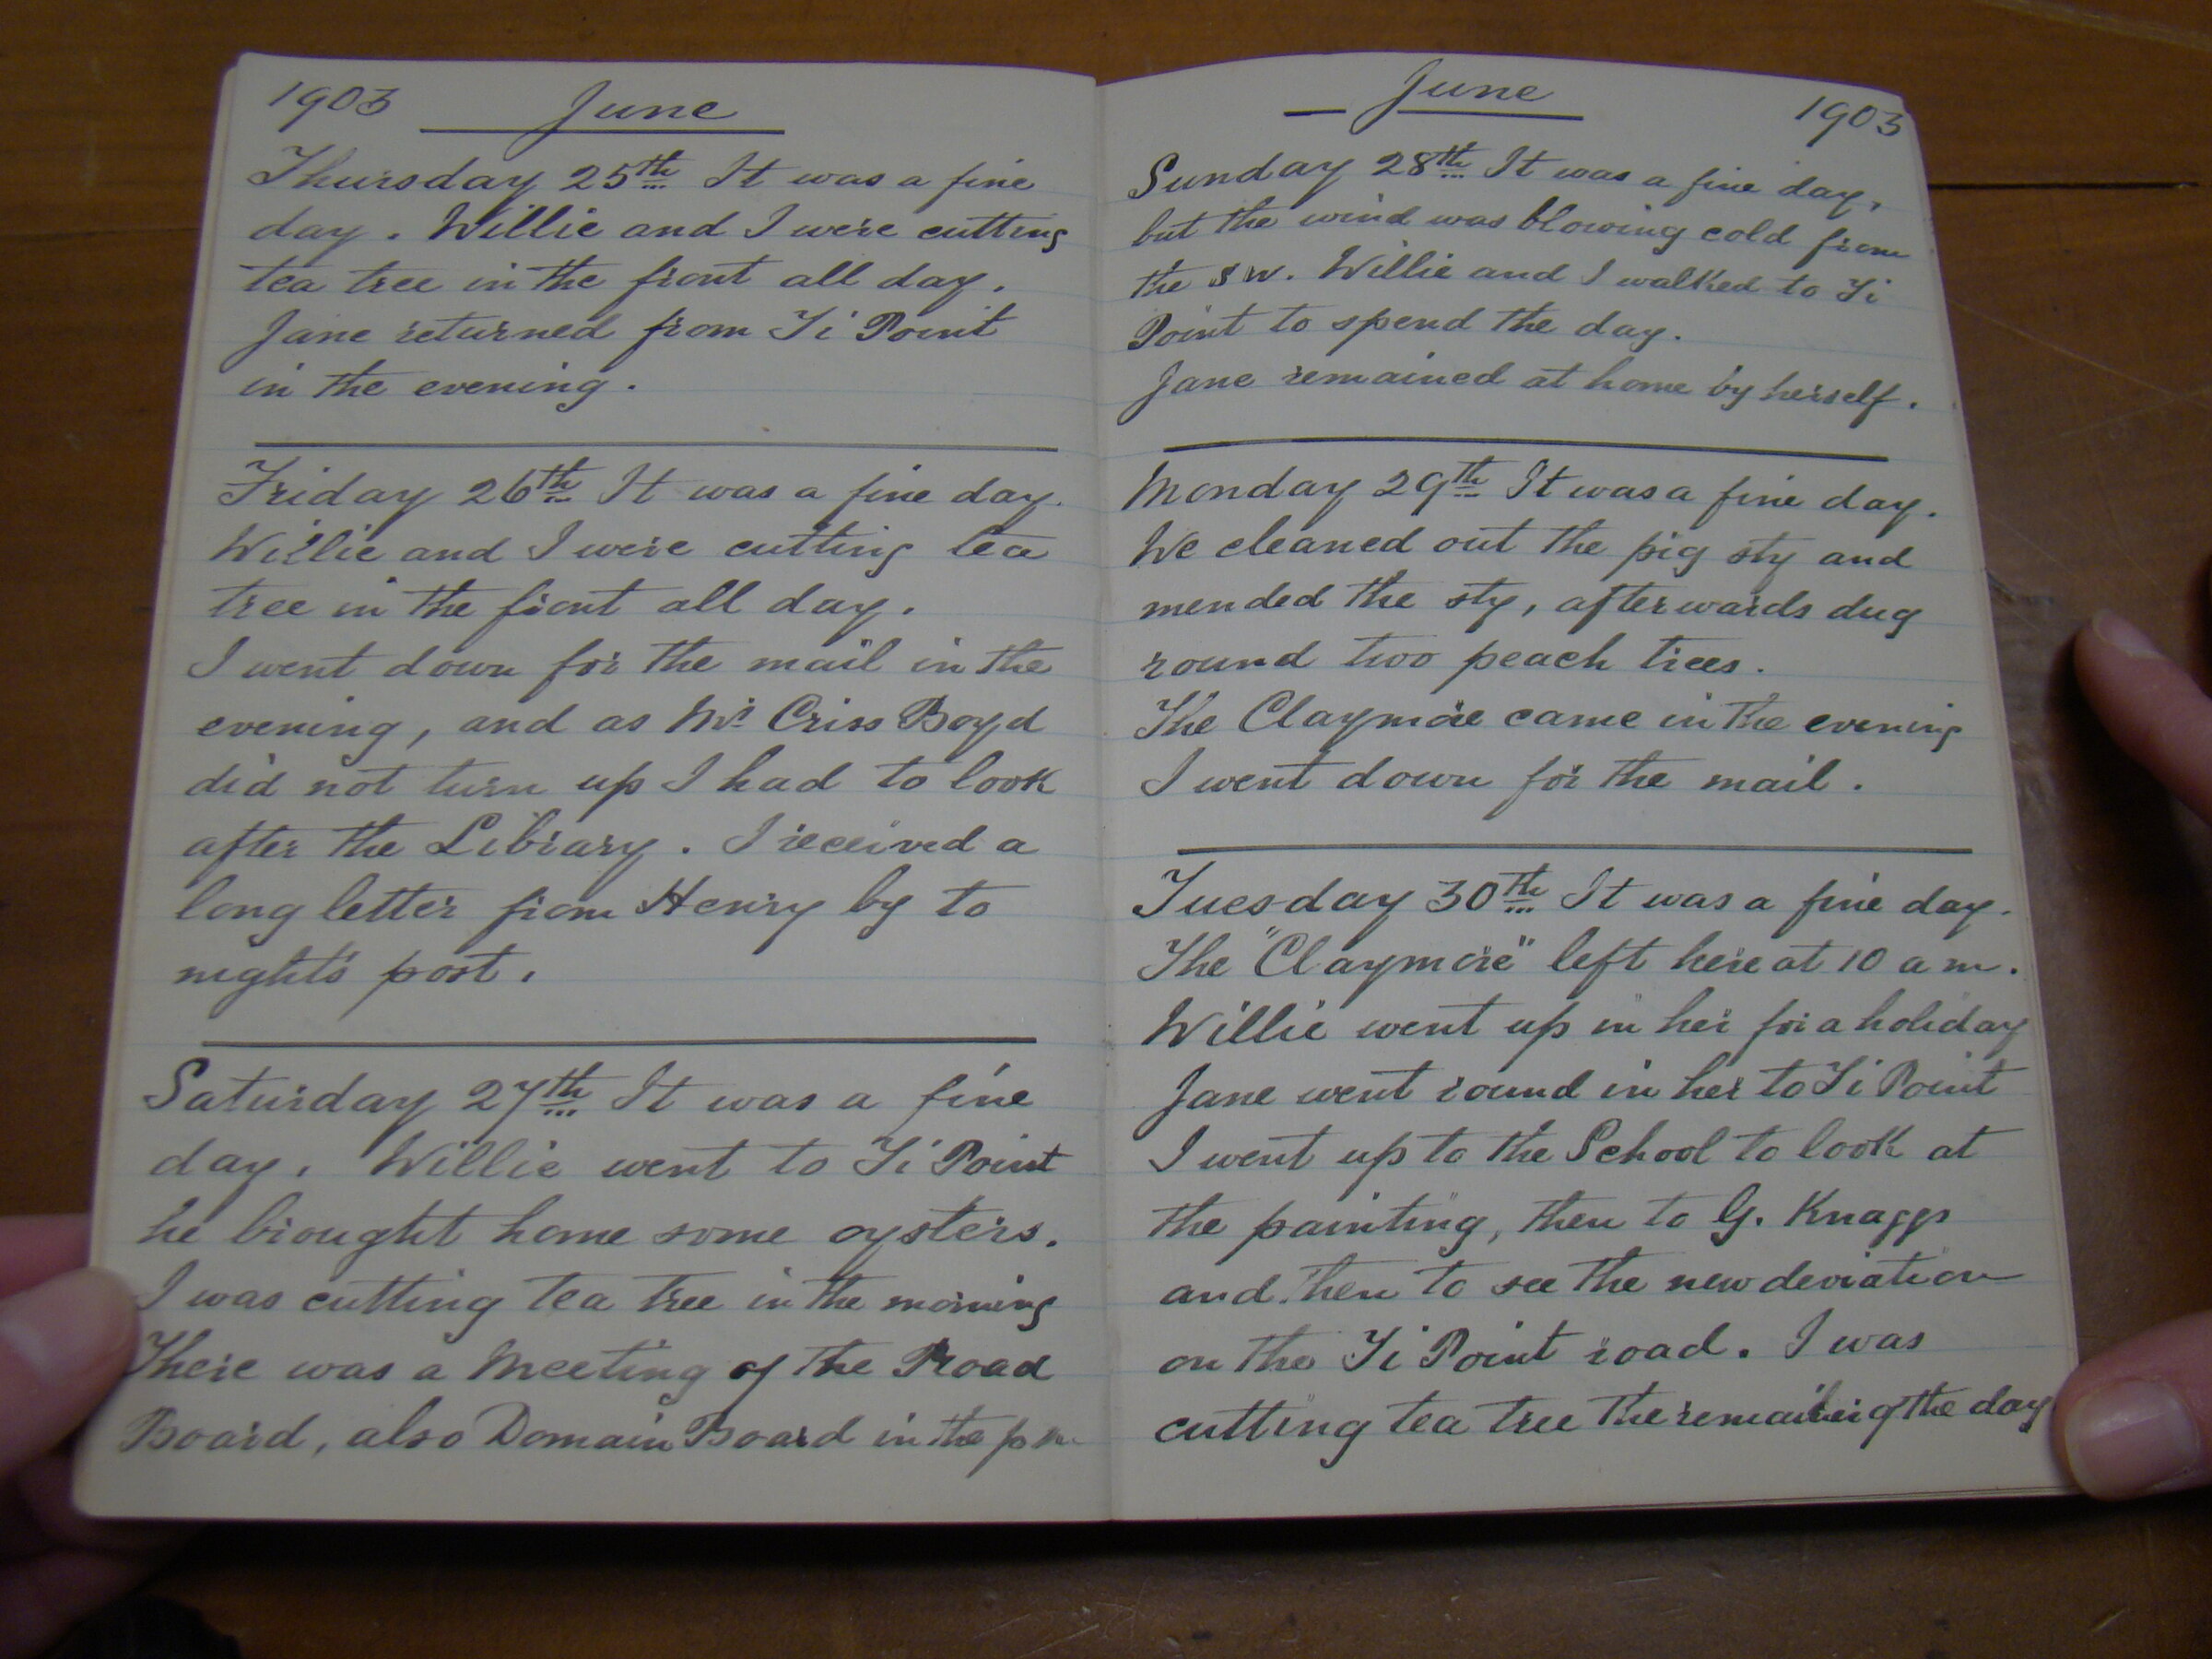 1903 June
Thursday 25th It was a fine
day. Willie and I were cutting
tea tree in the front all day.
Jane returned from Ti Point
in the evening.
Friday 26th It was a fine day.
Willie and I were cutting tea
tree in the front all day.
I went down for the mail in the
evening, and as Mr Criss Boyd
did not turn up I had to look
after the Library. I received a
long letter from Henry by to
night's post.
Saturday 27th It was a fine
day. Willie went to Ti Point
he brought home some oysters.
I was cutting tea tree in the morning
There was a Meeting of the Road
Board, also Domain Board in the pm
June 1903
Sunday 28th It was a fine day,
but the wind was blowing cold from
the SW. Willie and I walked to Ti
Point to spend the day.
Jane remained at home by herself.
Monday 29th It was a fine day.
We cleaned out the pig sty and
mended the sty, afterwards dug
round two peach trees.
The Claymore came in the evening
I went down for the mail.
Tuesday 30th It was a fine day.
The "Claymore" left here at 10 a m.
Willie went up in her for a holiday
Jane went round in her to Ti Point
I went up to the School to look at
the painting, then to G. Knaggs
and then to see the new deviation
on the Ti Point road. I was
cutting tea tree the remainder of the day